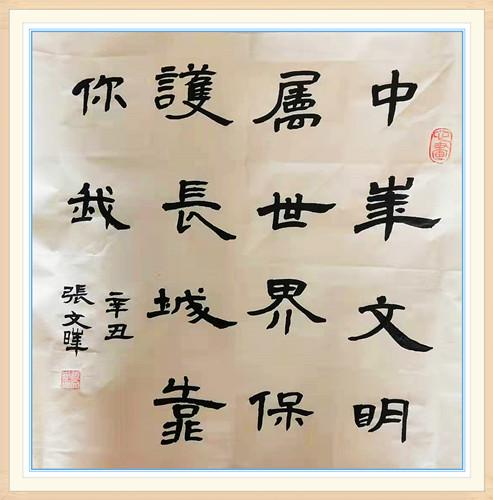 中華文明
属世界保
護長城靠
你我
辛丑
張文暉